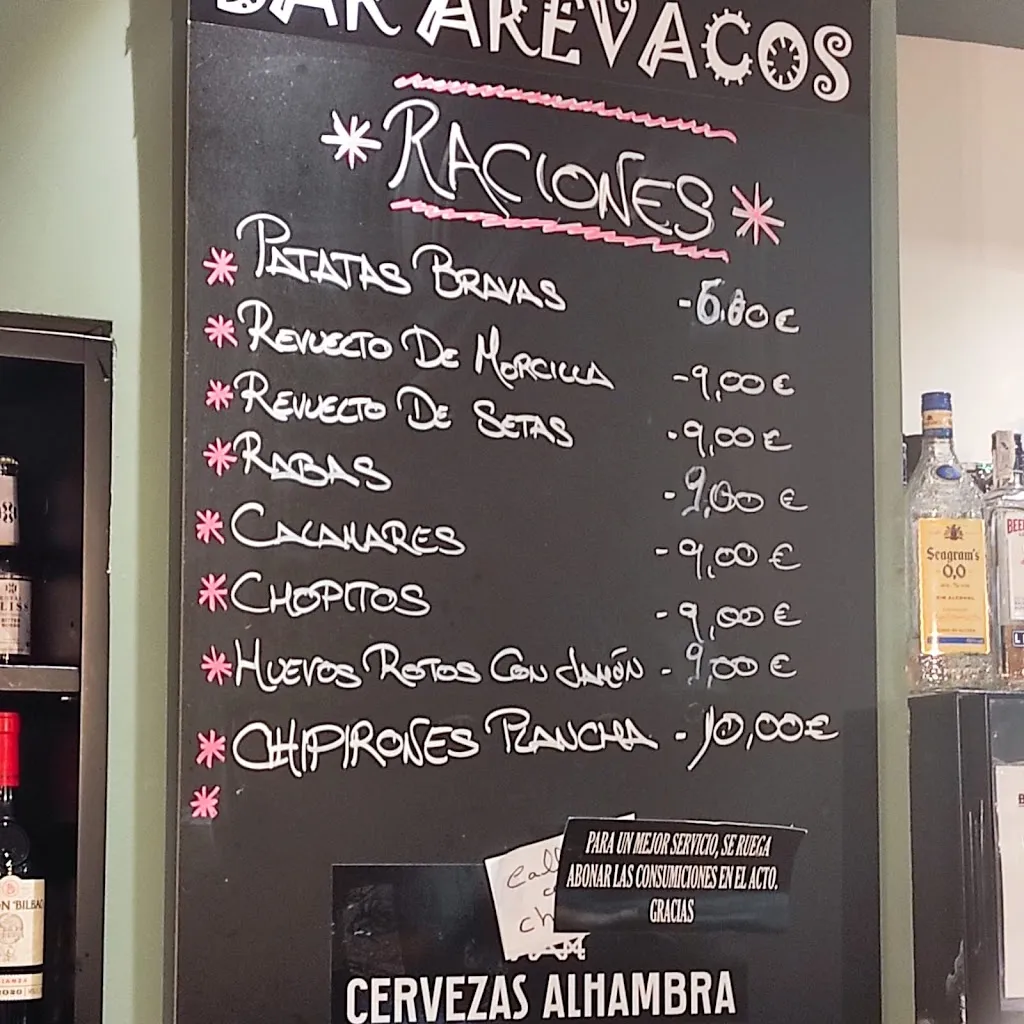 BAR AREVACOS
RACIONES
PATATAS BRAVAS - 6.00 €
REVUELTO DE MORCILLA - 9,00 €
REVUELTO DE SETAS - 9,00 €
RABAS - 9,00 €
CALAMARES - 9,00 €
CHOPITOS - 9,00 €
HUEVOS ROTOS CON JAMÓN - 9,00 €
CHIPIRONES PLANCHA - 10,00€
PARA UN MEJOR SERVICIO, SE RUEGA
ABONAR LAS CONSUMICIONES EN EL ACTO.
GRACIAS
CERVEZAS ALHAMBRA
Seagram's
0,0
SIN ALCOHOL